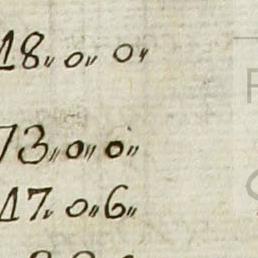 18〃 0〃 0〃
73〃 0〃 0〃
17〃 0〃 6〃